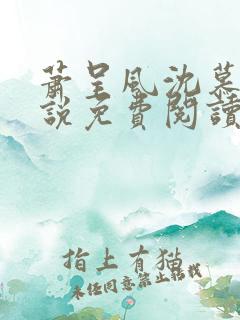 萧呈风沈慕
說免費閱讀
指上有猫
未经同意禁止转载